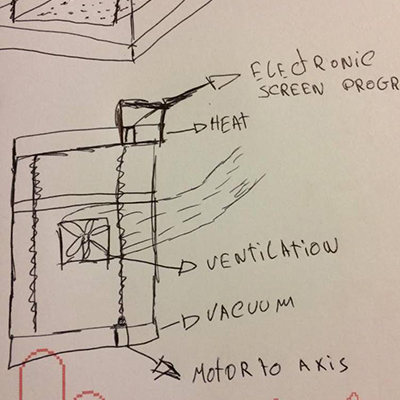 ELECTRONIC
SCREEN PROGR
HEAT
VENTILATION
VACUUM
MOTOR TO AXIS